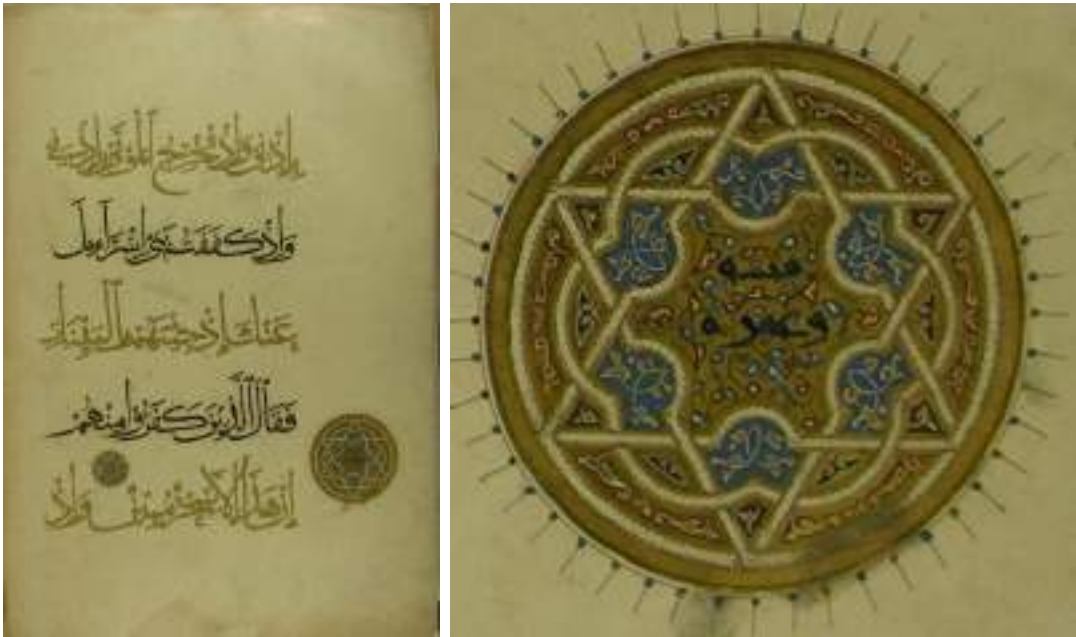 بإذني وإذ تخرج الموتى بإذني
وإذ كففت بني إسرائيل
عنك إذ جئتهم بالبينات
فقال الذين كفروا منهم
إن هذا إلا سحر مبين وإذ
وعشرة